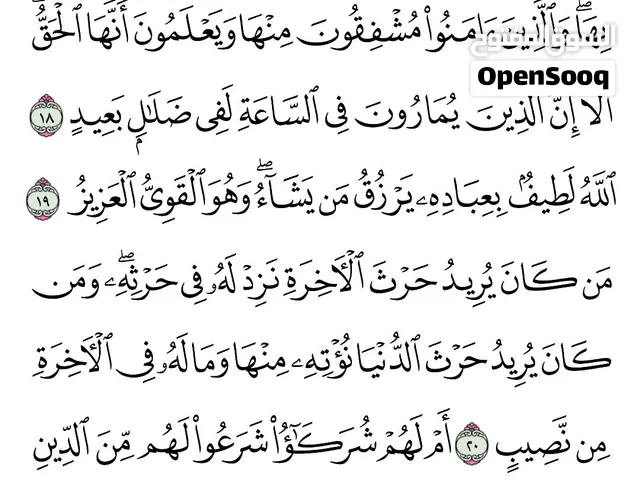 بِهَاۖ وَٱلَّذِينَ ءَامَنُوا۟ مُشْفِقُونَ مِنْهَا وَيَعْلَمُونَ أَنَّهَا ٱلْحَقُّۗ
السوق المفتوح
OpenSooq
أَلَآ إِنَّ ٱلَّذِينَ يُمَارُونَ فِى ٱلسَّاعَةِ لَفِى ضَلَـٰلٍۭ بَعِيدٍ ١٨
ٱللَّهُ لَطِيفٌۢ بِعِبَادِهِۦ يَرْزُقُ مَن يَشَآءُۖ وَهُوَ ٱلْقَوِىُّ ٱلْعَزِيزُ ١٩
مَن كَانَ يُرِيدُ حَرْثَ ٱلْـَٔاخِرَةِ نَزِدْ لَهُۥ فِى حَرْثِهِۦۖ وَمَن
كَانَ يُرِيدُ حَرْثَ ٱلدُّنْيَا نُؤْتِهِۦ مِنْهَا وَمَا لَهُۥ فِى ٱلْـَٔاخِرَةِ
مِن نَّصِيبٍ ٢٠ أَمْ لَهُمْ شُرَكَـٰٓؤُا۟ شَرَعُوا۟ لَهُم مِّنَ ٱلدِّينِ